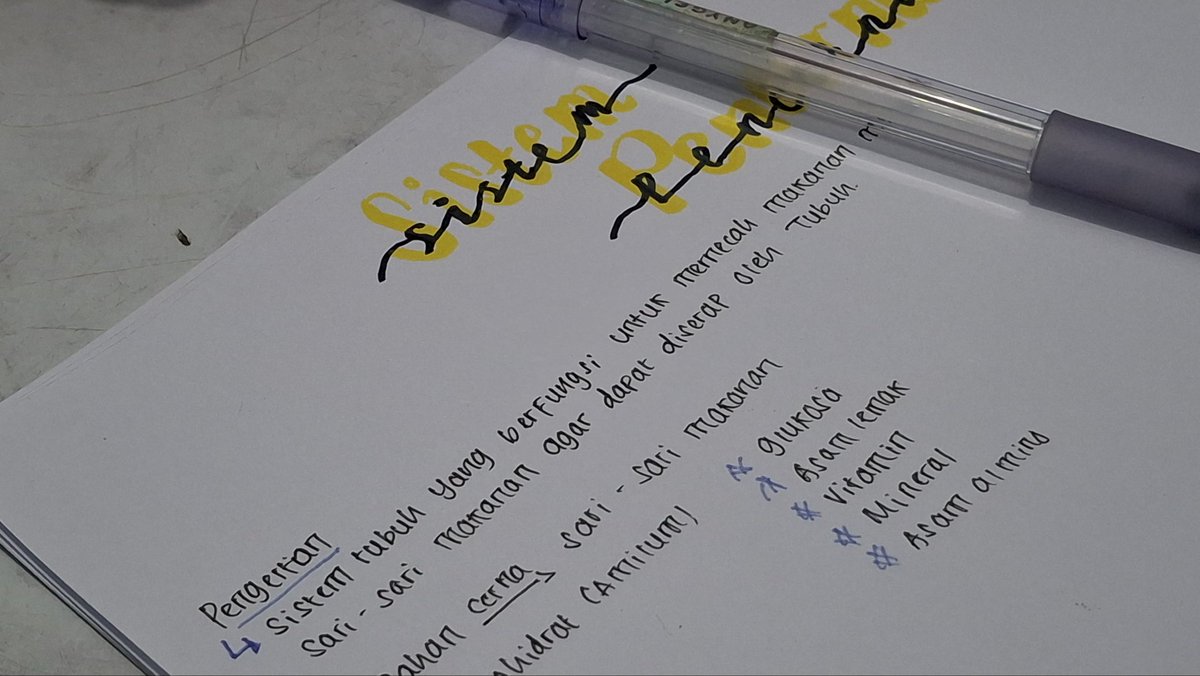 Sistem
Pengertian
↳ Sistem tubuh yang berfungsi untuk memecah makanan
sari - sari makanan agar dapat diserap oleh tubuh.
cerna → sari - sari makanan
(Amilum)
* glukasa
* Asam lemak
* Vitamin
* Mineral
* Asam almino